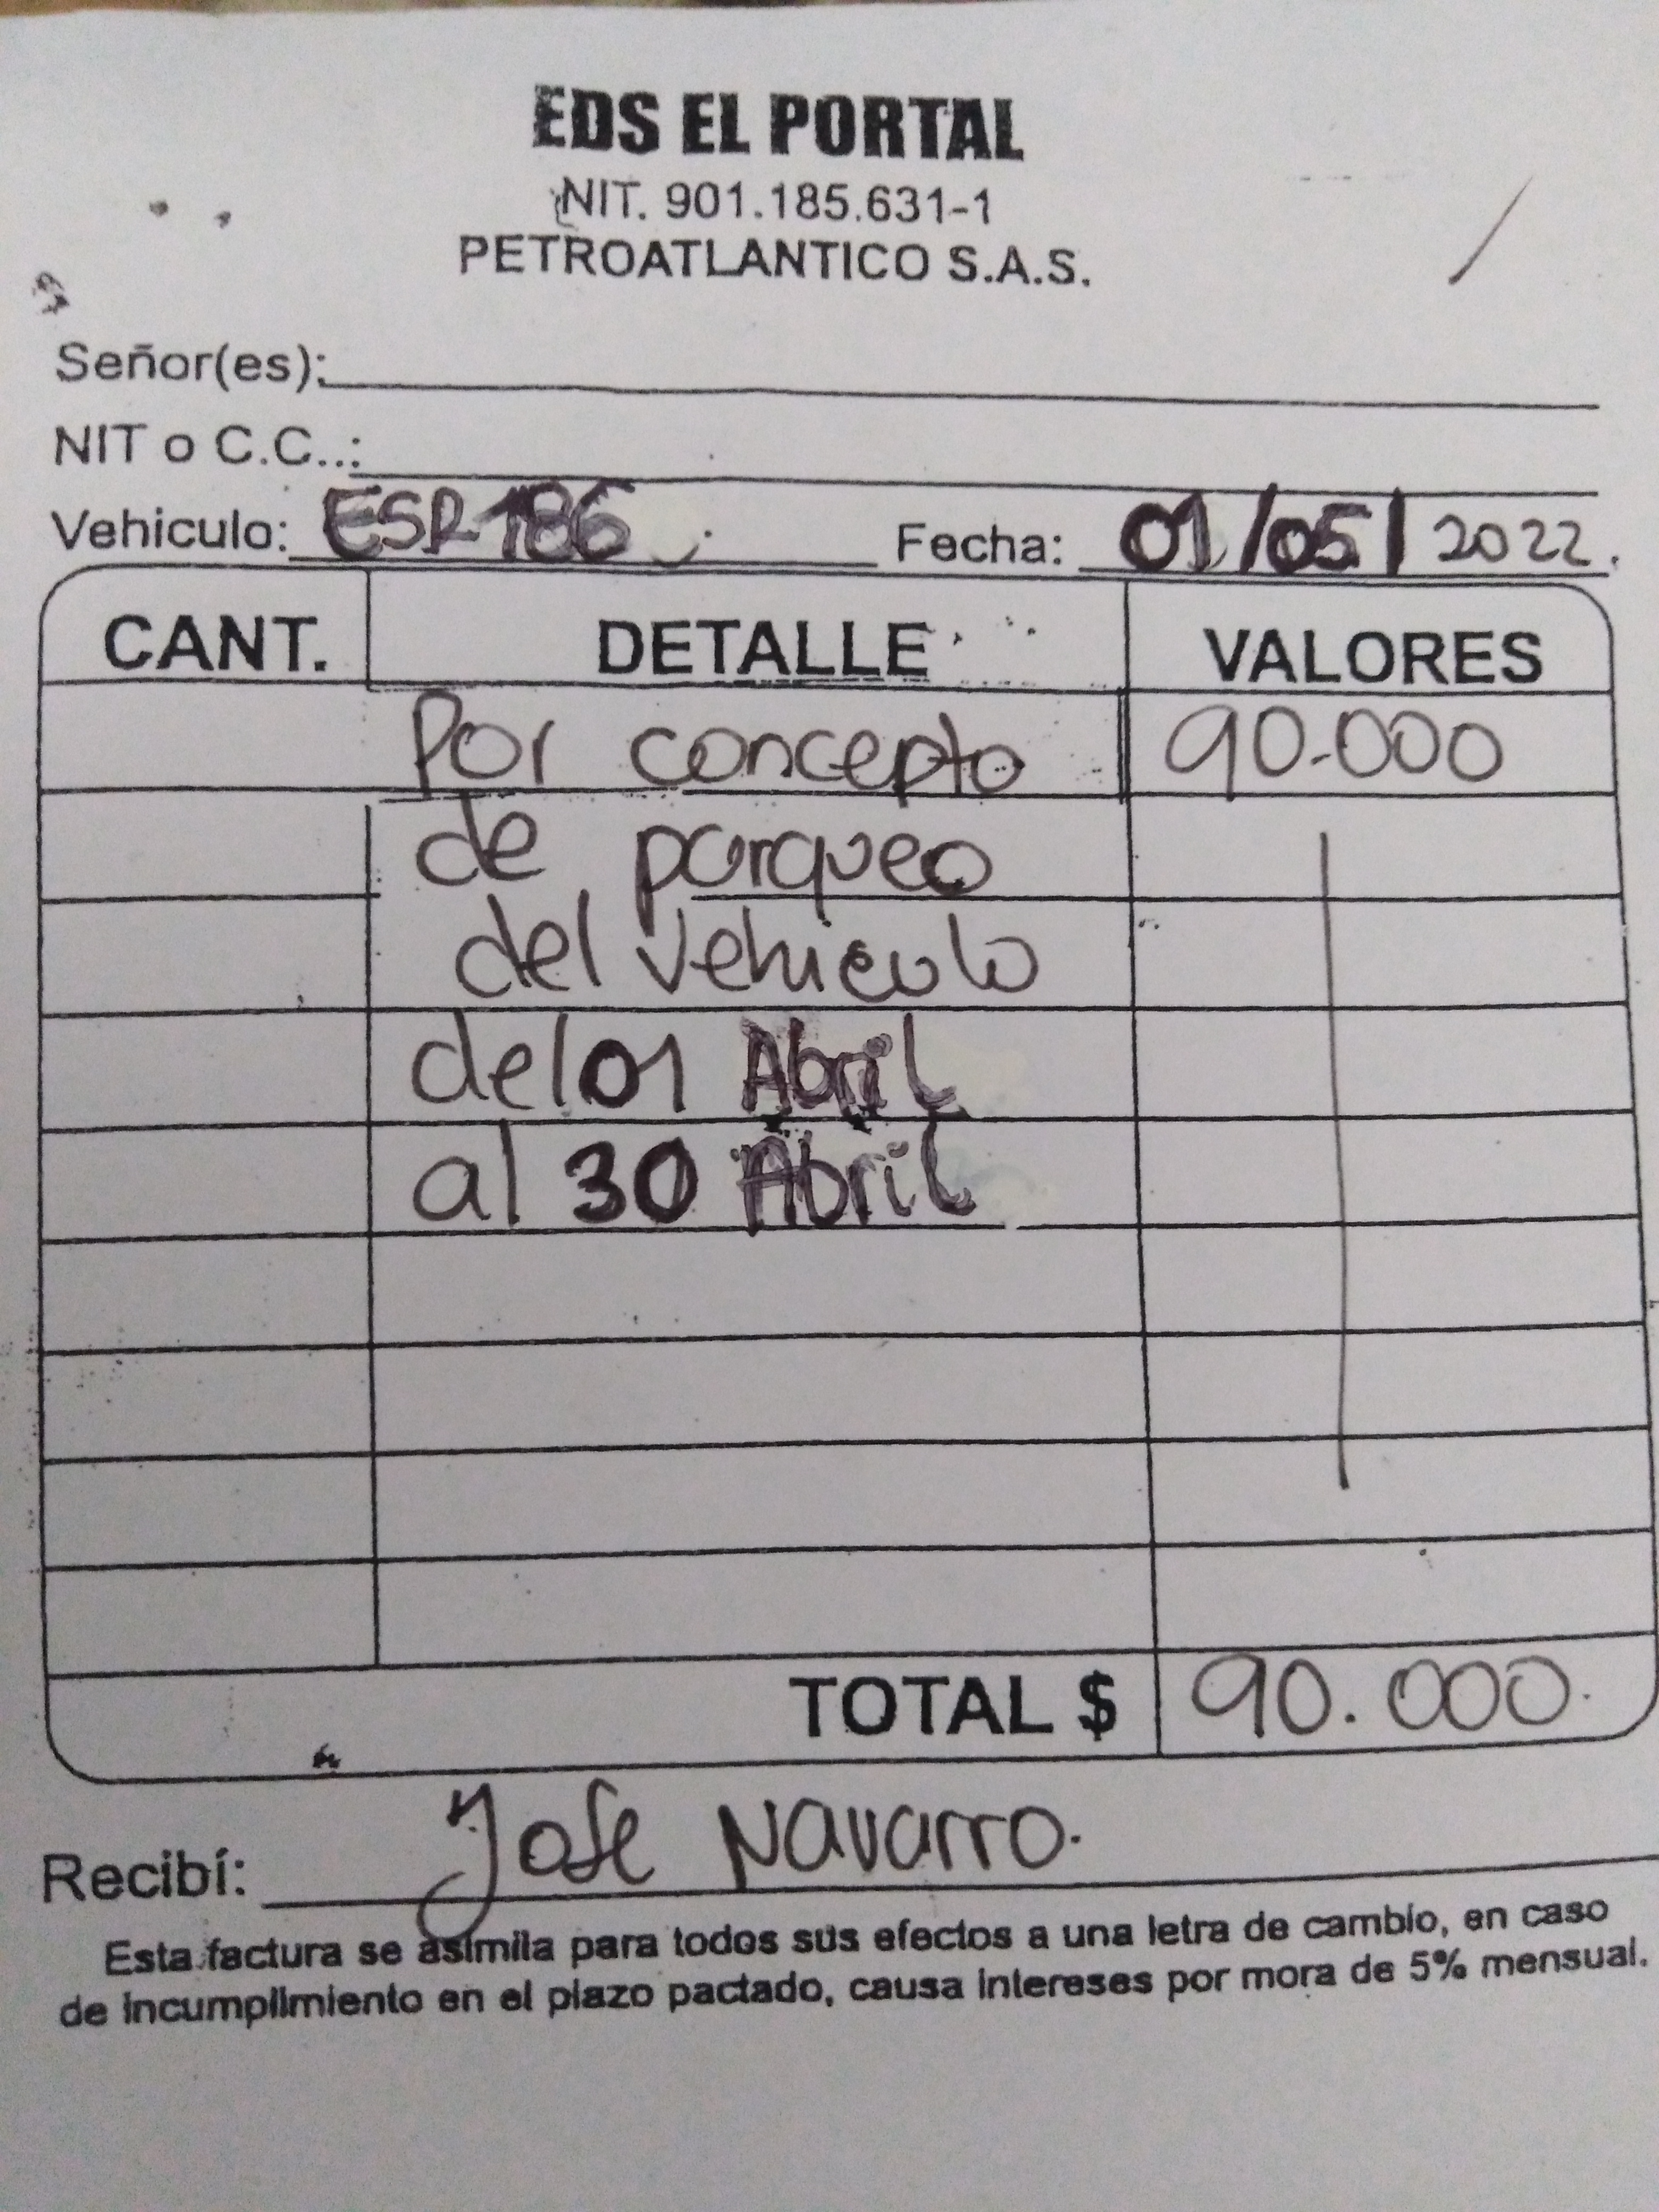 EDS EL PORTAL
NIT. 901.185.631-1
PETROATLANTICO S.A.S.
Señor(es):
NIT o C.C..:
Vehiculo: ESR186 Fecha: 01/05/2022.
CANT. DETALLE VALORES
Por concepto 90.000
de parqueo
del vehiculo
del 01 Abril
al 30 Abril
TOTAL $ 90.000
Recibí: Jose Navarro.
Esta factura se asimila para todos sus efectos a una letra de cambio, en caso
de incumplimiento en el plazo pactado, causa intereses por mora de 5% mensual.